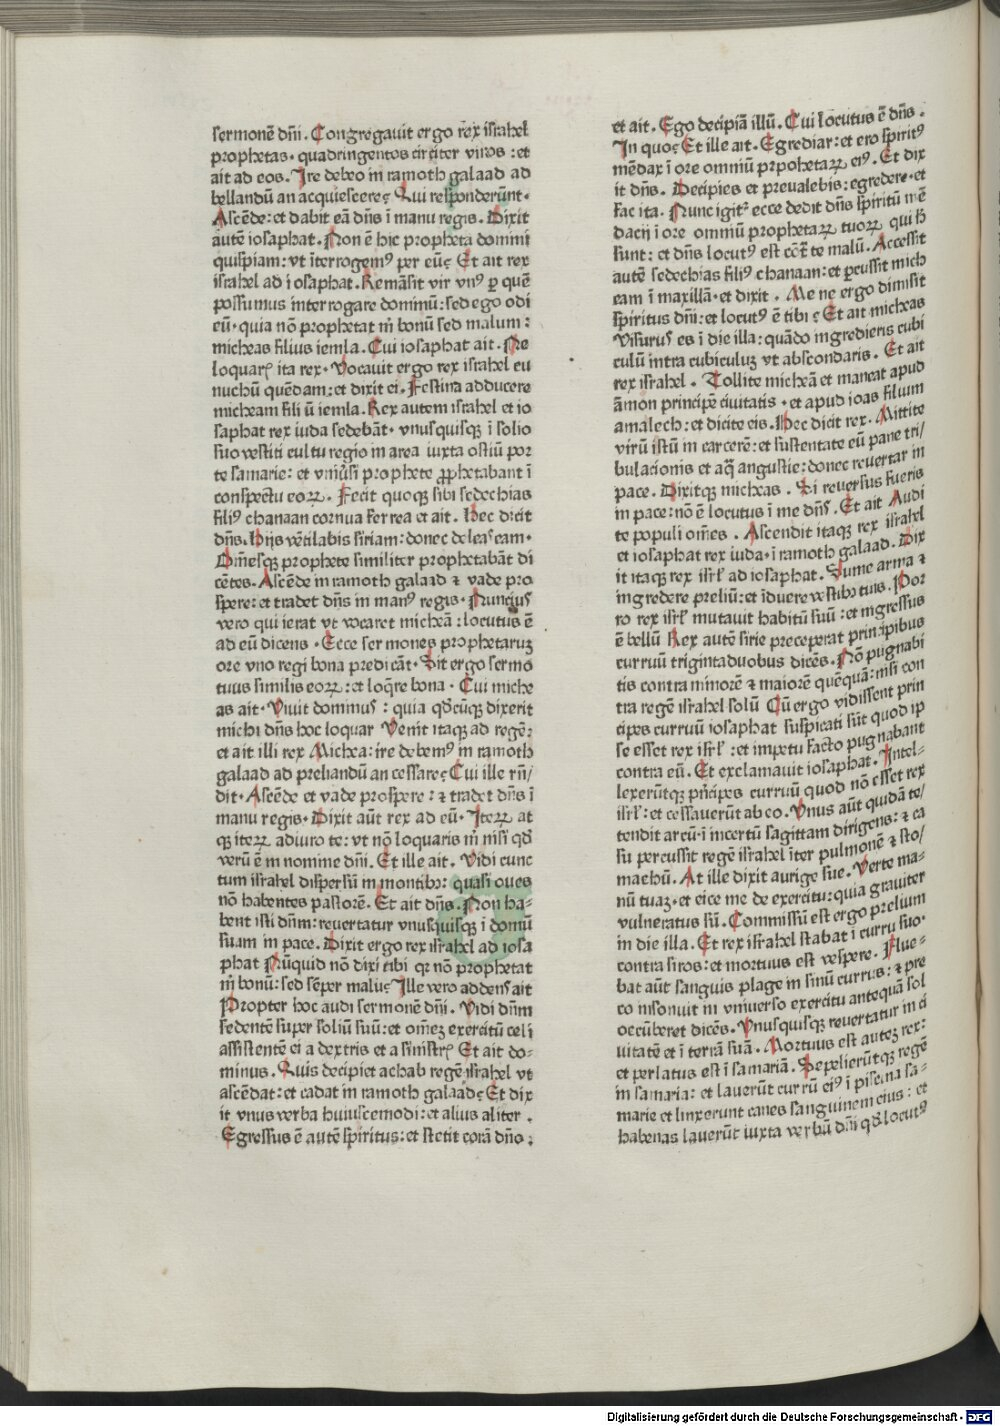 sermonē dñi. Congregauit ergo rex israhel
prophetas. quadringentos circiter viros : et
ait ad eos. Ire debeo in ramoth galaad ad
bellandū an acquiescere? Qui responderunt.
Ascēde: et dabit eā dñs ī manu regis. Dixit
autē iosaphat. Non ē hic propheta domini
quispiam: vt īterrogemꝰ per eū? Et ait rex
israhel ad iosaphat. Remāsit vir vnꝰ ꝑ quē
possumus interrogare dominū: sed ego odi
eū. quia nō prophetat m̄ bonū sed malum:
micheas filius iemla. Cui iosaphat ait. Ne
loquarꝭ ita rex. Vocauit ergo rex israhel eu
nuchū quēdam: et dixit ei. Festina adducere
micheam fili ū iemla. Rex autem israhel et io
saphat rex iuda sedebāt. vnusquisqꝫ ī solio
suo vestiti cultu regio in area iuxta ostiū por
te samarie: et vniūsi prophete ꝓphetabant ī
conspectu eoꝝ. Fecit quoqꝫ sibi sedechias
filiꝰ chanaan cornua ferrea et ait. Hec dicit
dñs. Hijs vētilabis siriam: donec deleas eam.
Om̄esqꝫ prophete similiter prophetabāt di
cētes. Ascēde in ramoth galaad ⁊ vade pro
spere: et tradet dñs in manꝰ regis. Nuncius
vero qui ierat vt vocaret micheā: locutus ē
ad eū dicens. Ecce sermones prophetaruꝫ
ore vno regi bona predicāt. Sit ergo sermo
tuus similis eoꝝ: et loq̄re bona. Cui miche
as ait. Viuit dominus : quia qd̄cūqꝫ dixerit
michi dñs hoc loquar Venit itaqꝫ ad regē:
et ait illi rex Michea: ire debemꝰ in ramoth
galaad ad preliandū an cessare? Cui ille rn̄/
dit. Ascēde et vade prospere: ⁊ tradet dñs ī
manu regis. Dixit aūt rex ad eū. Iteꝝ at
qꝫ iteꝝ adiuro te: vt nō loquaris m̄ nisi qd̄
verū ē in nomine dñi. Et ille ait. Vidi cunc
tum israhel dispersū in montibꝫ: quasi oues
nō habentes pastorē. Et ait dñs. Non ha-
bent isti dn̄m: reuertatur vnusquisqꝫ ī domū
suam in pace. Dixit ergo rex israhel ad iosa
phat Nūquid nō dixi tibi qr nō prophetat
m̄ bonū: sed sēper malū? Ille vero addens ait
Propter hoc audi sermonē dñi. Vidi dn̄m
sedentē super soliū suū: et omeꝫ exercitū celi
assistentē ei a dextris et a sinistrꝭ Et ait do-
minus. Quis decipiet achab regē israhel vt
ascēdat: et cadat in ramoth galaad? Et dix
it vnus verba huiuscemodi: et alius aliter.
Egressus ē autē spiritus: et stetit corā dño:
et ait. Ego decipiā illū. Cui locutus ē dñs.
In quo? Et ille ait. Egrediar: et ero spiritꝰ
mēdax ī ore omniū prpohetaꝝ eiꝰ. Et dix
it dñs. Decipies et preualebis: egredere. et
fac ita. Nunc igitꝰ ecce dedit dñs spiritū mē
dacij ī ore omniū prophetaꝝ tuoꝝ qui h̄
sunt: et dñs locutꝰ est cōt̄ te malū. Accessit
autē sedechias filiꝰ chanaan: et ꝑcussit mich
eam ī maxillā. et dixit. Me ne ergo dimisit
spiritus dñi: et locutꝰ ē tibi? Et ait micheas
Visurus es ī die illa: quādo ingredieris cubi
culū intra cubiculuꝫ vt abscondaris. Et ait
rex israhel. Tollite micheā et maneat apud
āmon principē ciuitatis. et apud ioas filium
amalech: et dicite eis. Hec dicit rex. Mittite
virū istū in carcerē: et sustentate eū pane tri/
bulacionis et aq̄ angustie: donec reuertar in
pace. Dixitqꝫ micheas. Si reuersus fueris
in pace: nō ē locutus ī me dñs. Et ait Audi
te populi om̄es. Ascendit itaqꝫ rex israhel
et iosaphat rex iuda. ī ramoth galaad. Dix
it itaqꝫ rex isrl̄ ad iosaphat. Sume arma ⁊
ingredere preliū: et īduere vestibꝫ tuis. Por
ro rex isrl̄ mutauit habitū suū: et ingressus
ē bellū Rex autē sirie preceperat principibus
curruū trigintaduobus dicēs. Nō pugnabi
tis contra minorē ⁊ maiorē quēquā: nisi con
tra regē israhel solū Cū ergo vidissent prin
cipes curruū iosaphat suspicati sūt quod ip
se esset rex isrl̄ : et impetu facto pugnabant
contra eū. Et exclamauit iosaphat. Intel-
lexerūtqꝫ pn̄cipes curruū quod nō esset rex
isrl̄: et cessauerūt ab eo. Vnus aūt quidā te/
tendit arcū. ī incertū sagittam dirigens: ⁊ ca
su percussit regē israhel īter pulmonē ⁊ sto/
machū. At ille dixit aurige sue. Verte ma-
nū tuaꝫ. et eice me de exercitu: quia grauiter
vulneratus sū. Commissū est ergo prelium
in die illa. Et rex israhel stabat ī curru suo.
contra siros: et mortuus est vespere. Flue-
bat aūt sanguis plage in sinū currus: ⁊ pre
co insonuit in vniuerso exercitu antequā sol
occūberet dicēs. Vnusquisqꝫ reuertatur in ci
uitatē et ī terrā suā. Mortuus est auteꝫ rex:
et perlatus est ī samariā. Sepelierūtqꝫ regē
in samaria: et lauerūt currū eiꝰ ī piscina sa-
marie et linxerunt canes sanguinem eius: et
habenas lauerūt iuxta verbū dñi qd̄ locutꝰ
Digitalisierung gefördert durch die Deutsche Forschungsgemeinschaft - DFG